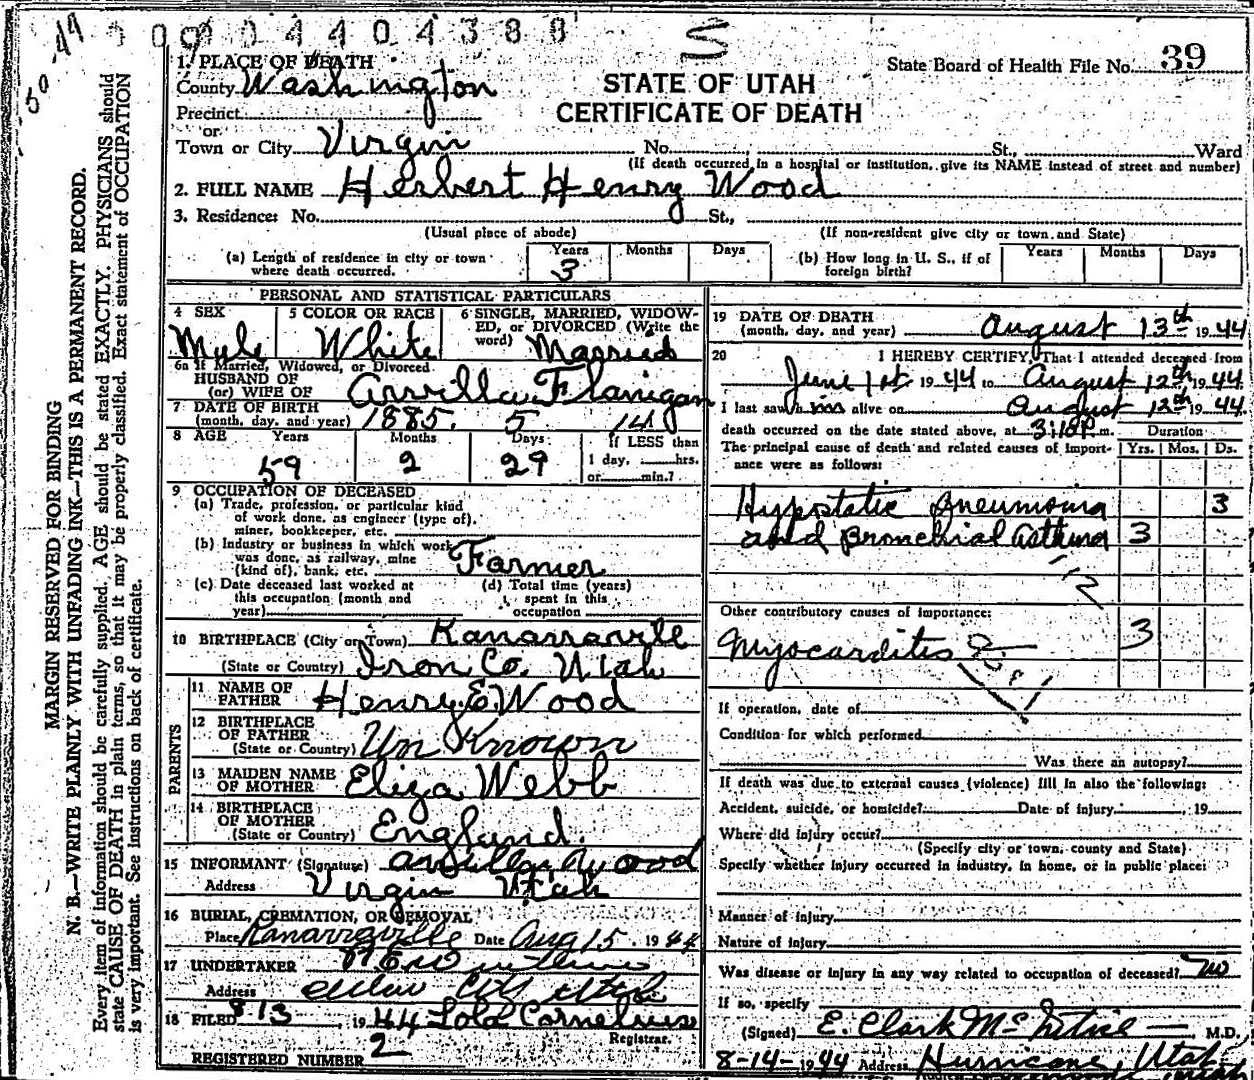 0 0 0 4 4 0 4 3 8 8
1. PLACE OF DEATH
County Washington
STATE OF UTAH
CERTIFICATE OF DEATH
State Board of Health File No. 39
Precinct
or
Town or City Virgin No. St., Ward
(If death occurred in a hospital or institution, give its NAME instead of street and number)
2. FULL NAME Herbert Henry Wood
3. Residence: No. St.,
(Usual place of abode) (If non-resident give city or town and State)
(a) Length of residence in city or town where death occurred. Years 3 Months Days
(b) How long in U. S., if of foreign birth? Years Months Days
PERSONAL AND STATISTICAL PARTICULARS
4 SEX Myle
5 COLOR OR RACE White
6 SINGLE, MARRIED, WIDOW-
ED, or DIVORCED (Write the
word) Married
6a If Married, Widowed, or Divorced
HUSBAND OF
(or) WIFE OF Arvilla Flanigan
7 DATE OF BIRTH
(month, day, and year) 1885. 5 14
8 AGE Years 59 Months 2 Days 29
If LESS than
1 day, hrs.
or min.?
9 OCCUPATION OF DECEASED
(a) Trade, profession, or particular kind
of work done, as engineer (type of),
miner, bookkeeper, etc.
(b) Industry or business in which work
was done, as railway, mine
(kind of), bank, etc. Farmer
(c) Date deceased last worked at
this occupation (month and
year)
(d) Total time (years)
spent in this
occupation
10 BIRTHPLACE (City or Town) Kanarraville
(State or Country) Iron Co. Utah
PARENTS
11 NAME OF
FATHER Henry E. Wood
12 BIRTHPLACE
OF FATHER
(State or Country) Un Known
13 MAIDEN NAME
OF MOTHER Eliza Webb
14 BIRTHPLACE
OF MOTHER
(State or Country) England.
15 INFORMANT (Signature) Wood
Address Virgin Utah
16 BURIAL, CREMATION, OR REMOVAL
Place Kanarraville Date Aug 15, 1944
17 UNDERTAKER
Address Cedar City Utah
18 FILED 8 13, 1944 Lola Cornelius
Registrar.
REGISTERED NUMBER 2
19 DATE OF DEATH
(month, day, and year) August 13th 1944
20 I HEREBY CERTIFY, That I attended deceased from
June 1st 1944 to August 12th, 1944
I last saw him alive on August 12th, 1944.
death occurred on the date stated above, at 3:10 p m. Duration
The principal cause of death and related causes of import-
ance were as follows: Yrs. Mos. Ds.
Hypostatic Pneumonia 3
and Bronchial asthma 3
112
Other contributory causes of importance:
Myocarditis 3
If operation, date of
Condition for which performed
Was there an autopsy?
If death was due to external causes (violence) fill in also the following:
Accident, suicide, or homicide? Date of injury , 19
Where did injury occur?
(Specify city or town, county and State)
Specify whether injury occurred in industry, in home, or in public place:
Manner of injury
Nature of injury
Was disease or injury in any way related to occupation of deceased? no
If so, specify
(Signed) E. Clark McIntire, M.D.
8-14-1944 Address Hurricane, Utah
MARGIN RESERVED FOR BINDING
N. B.—WRITE PLAINLY WITH UNFADING INK—THIS IS A PERMANENT RECORD.
Every item of information should be carefully supplied. AGE should be stated EXACTLY. PHYSICIANS should
state CAUSE OF DEATH in plain terms, so that it may be properly classified. Exact statement of OCCUPATION
is very important. See instructions on back of certificate.